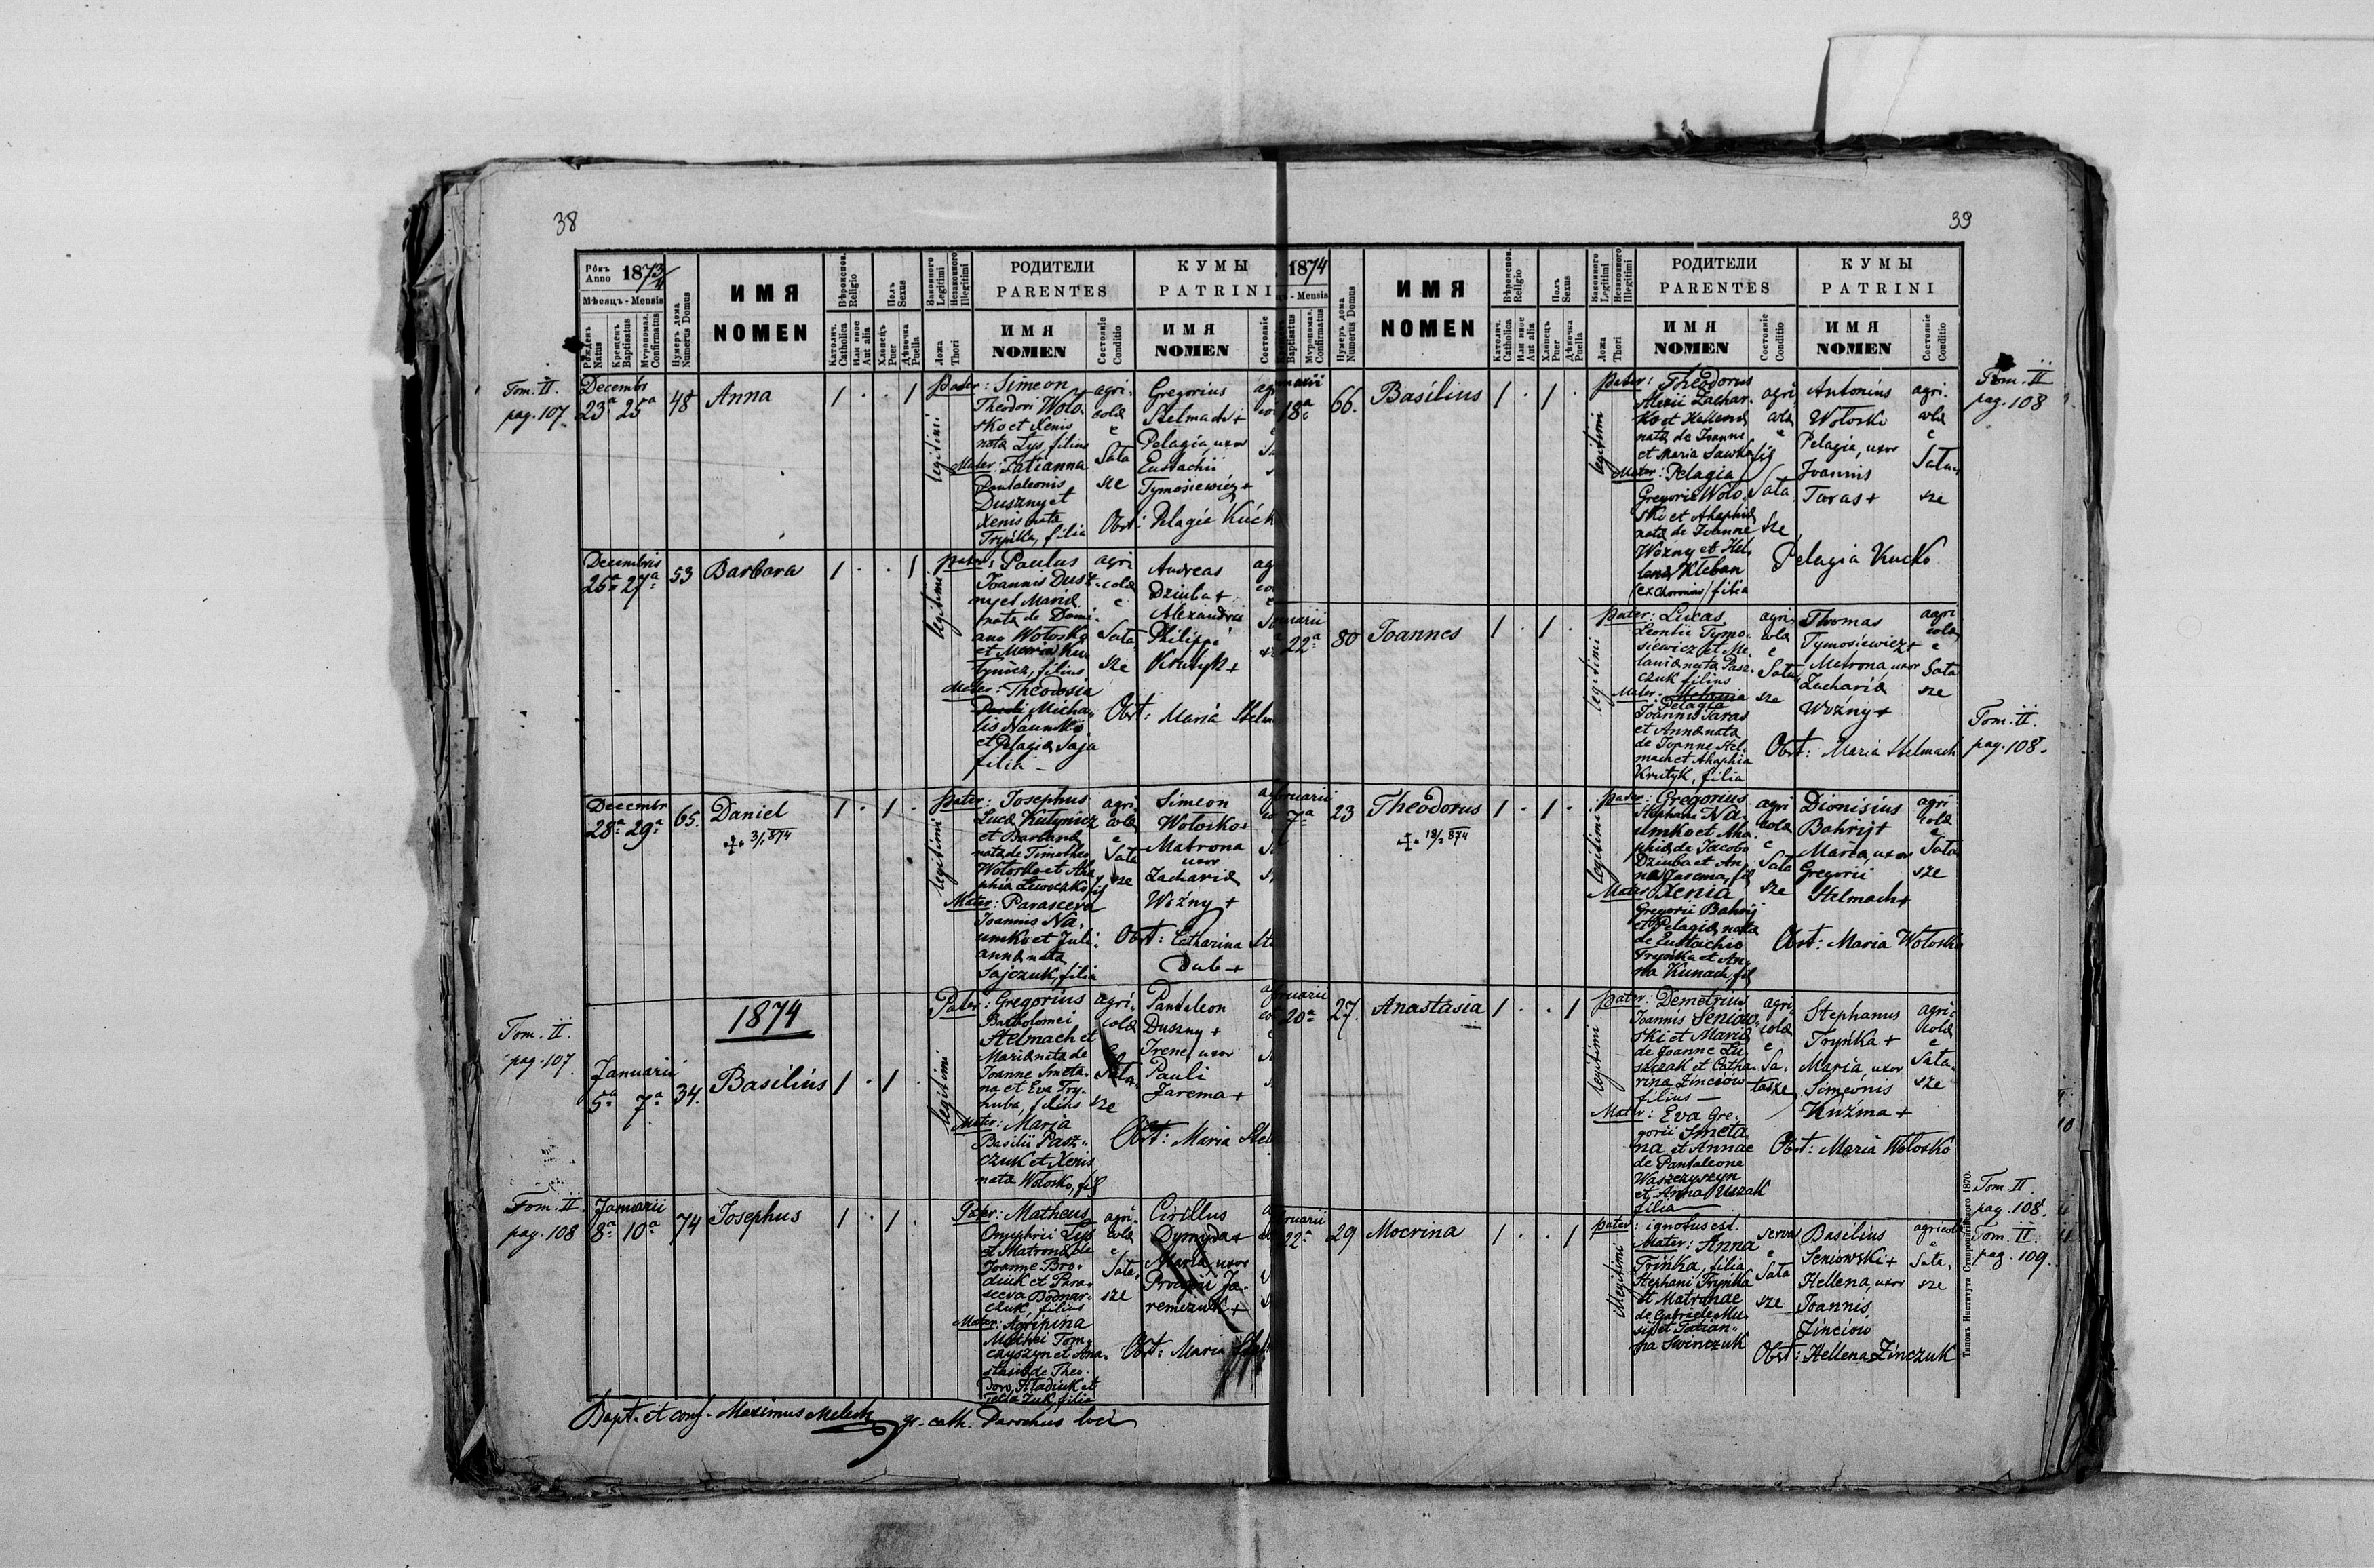 38
Рôкъ Anno 1873/4
Мѣсяцъ - Mensis
Рожденъ Natus
Крещенъ Baptisatus
Мѵропомаз. Confirmatus
Нумеръ дома Numerus Domus
ИМЯ
NOMEN
Вѣроиспов. Religio
Католич. Catholica
Или иное Aut alia
Полъ Sexus
Хлопецъ Puer
Дѣвочка Puella
Законного Legitimi
Незаконного Illegitimi
Ложа Thori
РОДИТЕЛИ
PARENTES
ИМЯ
NOMEN
Состояніе Conditio
КУМЫ
PATRINI
ИМЯ
NOMEN
Состояніе
Tom. II.
pag. 107
Decembr
23ª 25ª
48
Anna
1 . . 1
legitimi
Pater: Simeon
Theodori Woło-
sko et Xenis
nata Lys, filius
Mater: Tatianna
Pantaleonis
Duszny et
Xenis nata
Trynka, filia
agri-
colæ
e
Sata
sze
Gregorius
Stelmach +
Pelagia, uxor
Eustachii
Tymosiewicz +
Obst: Pelagia Kuck
Decembris
26ª 27ª
53
Barbara
1 . . 1
legitimi
Pater: Paulus
Joannis Dusz-
ny et Mariæ
nata de Dami-
ano Wołosko
et Maria Ku-
tynicz, filius
Mater: Theodosia
Micha-
lis Naumko
et Pelagiæ Saja
filia –
agri
colæ
e
Sata
sze
Andreas
Dziuba +
Alexandra
Philippi
Krutyk +
Obst: Maria Stelm
Decembr
28ª 29ª
65.
Daniel
+ 3/1 874
1 . 1 .
legitimi
Pater: Josephus
Lucæ Kutynicz
et Barbaræ
nata de Timotheo
Wołosko et Aha
phia Lewoczko fil
Mater: Parasceva
Joannis Na-
umko et Juli-
annæ nata
Sajczuk, filia
agri
colæ
e
Sata
sze
Simeon
Wołosko +
Matrona
uxor
Zachariæ
Woźny +
Obst: Catharina Ste
Dub +
1874
Tom. II.
pag. 107
Januarii
5ª 7ª
34.
Basilius
1 . 1 .
legitimi
Pater: Gregorius
Bartholomei
Stelmach et
Mariæ nata de
Joanne Smeta-
na et Eva Try-
huba, filius
Mater: Maria
Basilii Pasz-
czuk et Xenis
nata Wołosko, fil
agri-
colæ
Sata-
sze
Pantaleon
Duszny +
Irene, uxor
Pauli
Jarema +
Obst: Maria Stel
Tom. II.
pag. 108
Januarii
8ª 10ª
74
Josephus
1 . 1 .
Pater: Matheus
Onuphrii Lys
et Matronæ de
Joanne Bro-
diuk et Para-
sceva Bodnar-
czuk, filius
Mater: Agripina
Mathei Tom-
czyszyn et Ana-
stasiæ de Theo-
doro Hładiuk et
Tecla Zuk, filia
agri-
colæ
e
Sata,
sze
Cirillus
Dymyda +
Maria, uxor
Procopii Ja-
remczuk +
Obst: Maria
Bapt. et conf. Maximus Melech gr. cath. Parochus loci
39
1874
- Mensis
Baptisatus
Мѵропомаз. Confirmatus
Нумеръ дома Numerus Domus
ИМЯ
NOMEN
Вѣроиспов. Religio
Католич. Catholica
Или иное Aut alia
Полъ Sexus
Хлопецъ Puer
Дѣвочка Puella
Законного Legitimi
Незаконного Illegitimi
Ложа Thori
РОДИТЕЛИ
PARENTES
ИМЯ
NOMEN
Состояніе Conditio
КУМЫ
PATRINI
ИМЯ
NOMEN
Состояніе Conditio
nuarii
18ª
66.
Basilius
1 . 1 .
legitimi
Pater: Theodorus
Alexii Zachar-
ko et Hellenæ
nata de Joanne
et Maria Sawka fil
Mater: Pelagia
Gregorii Woło-
sko et Ahaphiæ
nata de Joanne
Woźny et Hel-
lena Kleban
filia
agri
colæ
e
Sata
sze
Antonius
Wołosko
Pelagia, uxor
Joannis
Taras +
Pelagia Kucko
agri-
colæ
e
Sata
sze
Tom. II
pag. 108
nuarii
22ª
80
Joannes
1 . 1 .
legitimi
Pater: Lucas
Leontii Tymo-
siewicz et Me-
laniæ nata Pasz-
czuk filius
Mater: Melania
Pelagia
Joannis Taras
et Annæ nata
de Joanne Stel-
mach et Ahaphia
Krutyk, filia
agri
colæ
e
Sata
sze
Thomas
Tymosiewicz +
Matrona, uxor
Zachariæ
Woźny +
Obst: Maria Stelmach
agri
colæ
e
Sata
sze
Tom. II.
pag. 108.
bruarii
7ª
23
Theodorus
+ 18/2 874
1 . 1 .
legitimi
Pater: Gregorius
Stephani Na-
umko et Aha-
phiæ de Jacobo
Dziuba et An-
na Jarema, fil
Mater: Xenia
Gregorii Bahrij
et Pelagiæ nata
de Eustachio
Trynka et An-
na Kunach, fil
agri
colæ
e
Sata
sze
Dionisius
Bahrij +
Maria, uxor
Gregorii
Stelmach +
Obst: Maria Wołosko
agri
colæ
e
Sata
sze
bruarii
20ª
27.
Anastasia
1 . . 1
legitimi
Pater: Demetrius
Joannis Seniow-
ski et Mariæ
de Joanne Lu-
szczak et Catha-
rina Zinciów
filius –
Mater: Eva Gre-
gorii Smeta
na et Annae
de Pantaleone
Waszczyszyn
et Anna Uszak
filia
agri-
colæ
e
Sa-
tasze
Stephanus
Trynka +
Maria, uxor
Simeonis
Kuźma +
Obst: Maria Wołosko
agri-
colæ
e
Sata-
sze
Tom. II
pag. 108.
bruarii
22ª
29
Mocrina
1 . . 1
Illegitimi
Pater: ignotus est.
Mater: Anna
Trinka, filia
Stephani Trynka
et Matronae
de Gabriele Mu-
sij et Tatian-
na Swinczuk
serva
e
Sata
sze
Basilius
Seniowski +
Hellena, uxor
Joannis
Zinciów
Obst: Hellena Zinczuk
agricolæ
e
Sata,
sze
Tom. II.
pag. 109.
Типомъ Института Ставропигійского 1870.